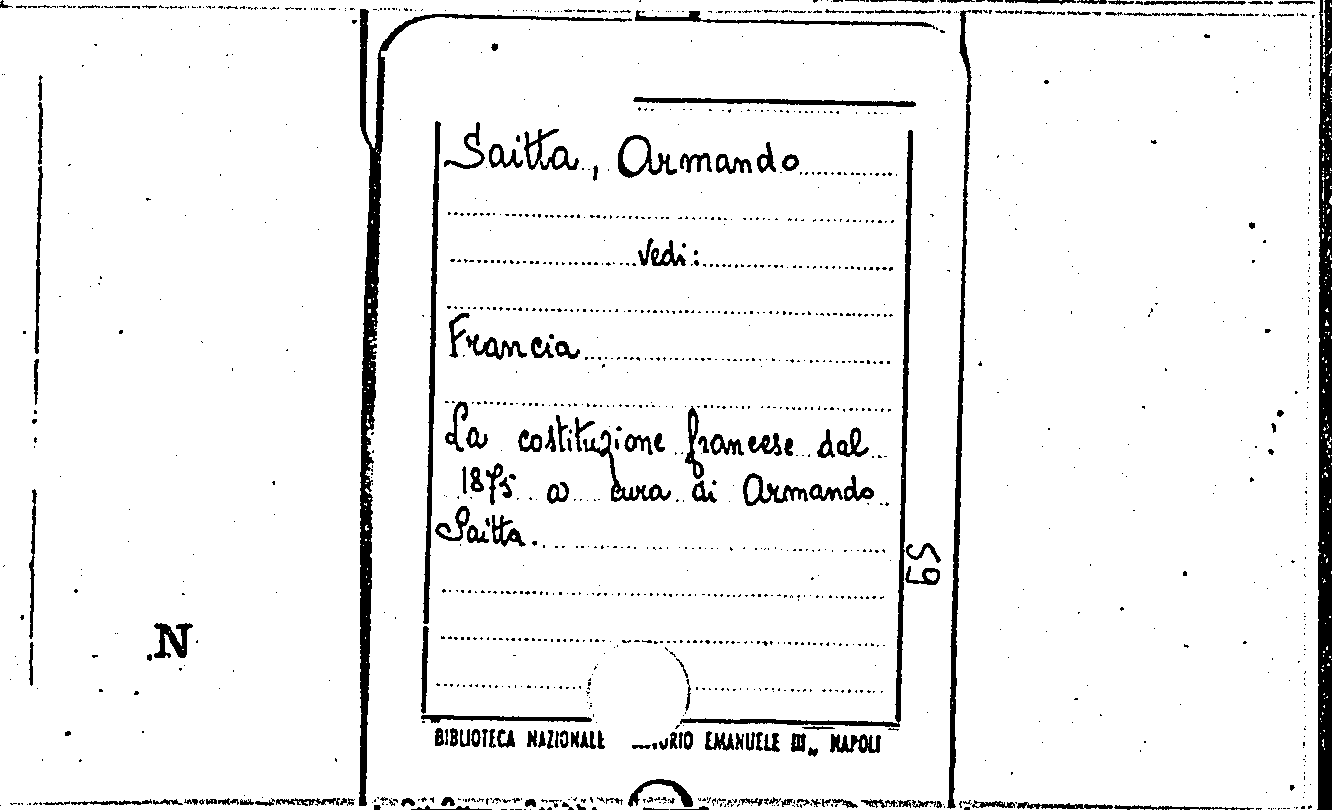 Saitta, Armando
Vedi:
Francia
La costituzione francese dal
1875 a cura di Armando
Saitta.
59
N
BIBLIOTECA NAZIONALE RIO EMANUELE III„ NAPOLI